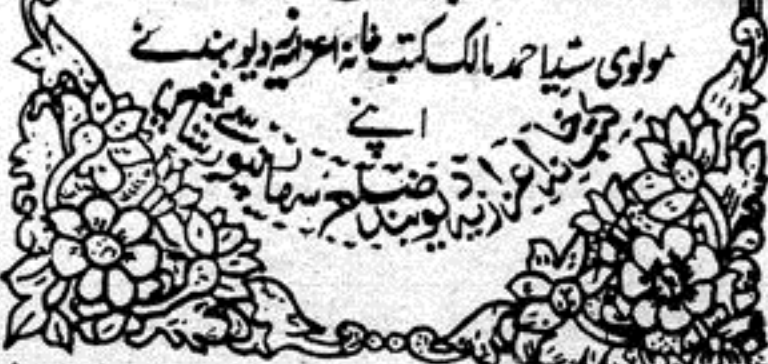 مولوی سید احمد مالک کتب خانہ اعزازیہ دیوبند نے
اپنے
کتب خانہ اعزازیہ دیوبند ضلع سہارنپور سے